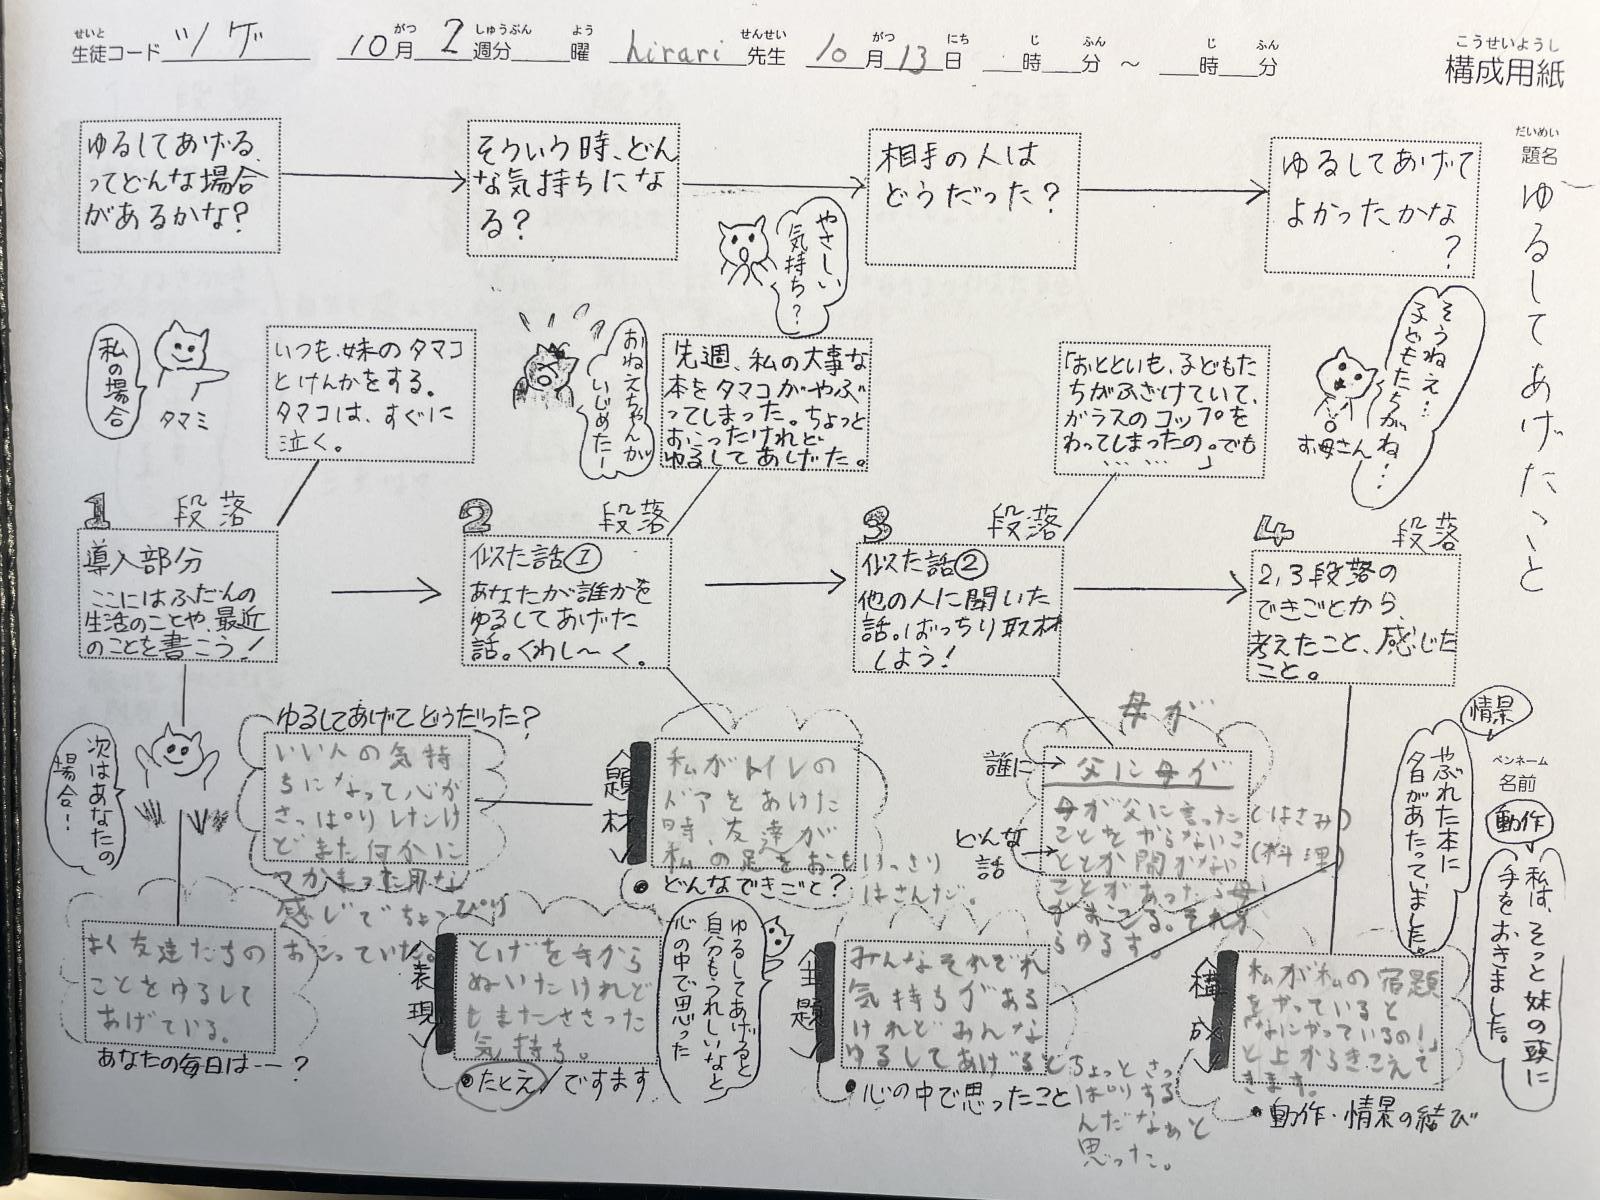 せいと がつ しゅうぶん よう せんせい がつ にち じ ふん じ ふん
生徒コード ツゲ 10月 2週分 曜 hirari 先生 10月13日 時 分 〜 時 分
こうせいようし
構成用紙
だいめい
題名
ゆるしてあげたこと
ゆるしてあげる、
ってどんな場合
があるかな?
そういう時、どん
な気持ちにな
る?
相手の人は
どうだった?
ゆるしてあげて
よかったかな
?
やさしい
気持ち?
私の場合
タマミ
いつも、妹のタマコ
とけんかをする。
タマコは、すぐに
泣く。
おねえちゃんが
いじめたー
先週、私の大事な
本をタマコがやぶ
ってしまった。ちょっと
おこったけれど
ゆるしてあげた。
「おとといも、子どもた
ちがふざけていて、
ガラスのコップを
わってしまったの。でも
……」
お母さん
そうねえ…
子どもたちがね…
1 段落
導入部分
ここにはふだんの
生活のことや、最近
のことを書こう!
2 段落
似た話①
あなたが誰かを
ゆるしてあげた
話。くわし〜く。
3 段落
似た話②
他の人に聞いた
話。ばっちり取材
しよう!
4 段落
2,3段落の
できごとから、
考えたこと、感じた
こと。
次はあなたの
場合!
ゆるしてあげてどうだった?
いい人の気持
ちになって心が
さっぱりしたけ
どまた何かに
つかまった用な
感じでちょっぴり
おこっていた。
題材
私がトイレの
ドアをあけた
時、友達が
私の足をおも
いっきり
はさんだ。
●どんなできごと?
母が
誰に→
父に母が
どんな
話
母が父に言った
ことをやらないこ
ととか聞かない
ことがあったら母
がおこる。それか
らゆるす。
(はさみ)
(料理)
情景
やぶれた本に
名前があたっていました。
ペンネーム
名前
動作
私は、そっと妹の頭に
手をおきました。
よく友達たちの
ことをゆるして
あげている。
あなたの毎日は--?
表現
とげを手から
ぬいたけれど
もまたささった
気持ち。
●たとえ/ですます
ゆるしてあげると
自分もうれしいなと
心の中で思った
主題
みんなそれぞれ
気持ちがある
けれどみんな
ゆるしてあげると
ちょっとさっ
ぱりする
んだなぁと
思った。
●心の中で思ったこと
構成
私が私の宿題
をやっていると
「なにやっているの!」
と上からきこえて
きます。
●動作・情景の結び